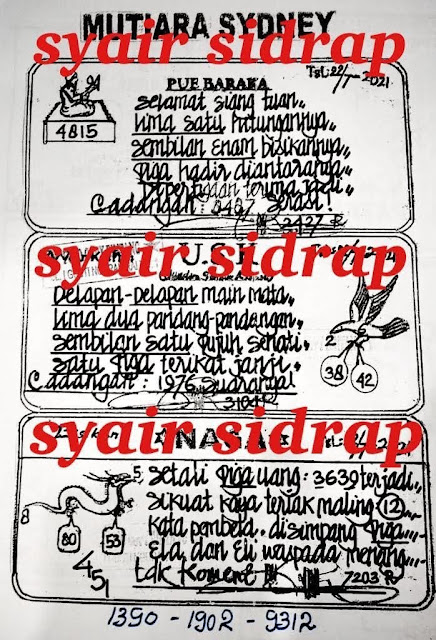 MUTIARA SYDNEY
syair sidrap
PUE BARAKA
Tgl: 22/1-2021
4815
selamat siang tuan,,
lima satu hitungannya,,
sembilan enam bisikannya,,
tiga hadir diantaranya,,
Cadangan : 3437 serasi!
3427 R
syair sidrap
delapan-delapan main mata,,
lima dua pandang-pandangan,,
sembilan satu tujuh sehati,,
satu tiga terikat janji,,
Cadangan : 1976 suaranya!
3104 R
2
38
42
syair sidrap
5. setali tiga uang : 3639 terjadi,,
sikuat kaya teriak maling 12
kata pembela. disimpang tiga
Ela, dan Eli waspada menang
tdk Koment
7203 R
8
80
53
451
1390 - 1902 - 9312